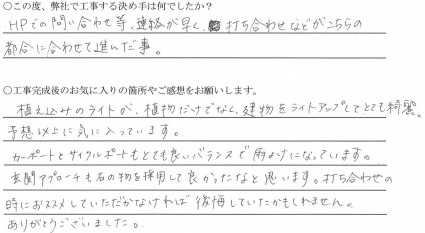 ○この度、弊社で工事する決め手は何でしたか？
HPでの問い合わせ等、連絡が早く、打ち合わせなどがこちらの
都合に合わせて進んだ事。
○工事完成後のお気に入りの箇所やご感想をお願いします。
植え込みのライトが、植物だけでなく、建物をライトアップしてとても綺麗。
予想以上に気に入っています。
カーポートとサイクルポートもとても良いバランスで雨よけになっています。
玄関アプローチも石の物を採用して良かったなと思います。打ち合わせの
時におススメしていただかなければ後悔していたかもしれません。
ありがとうございました。